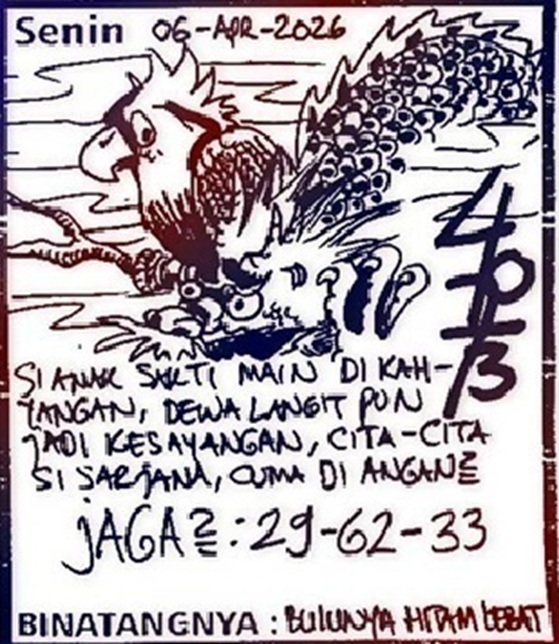 Senin 06-APR-2026
SI ANAK SAKTI MAIN DI KAH-
YANGAN, DEWA LANGIT PUN
JADI KESAYANGAN, CITA-CITA
SI SARJANA, CUMA DI ANGAN2
JAGA2: 29-62-33
BINATANGNYA : BULUNYA HITAM LEBAT